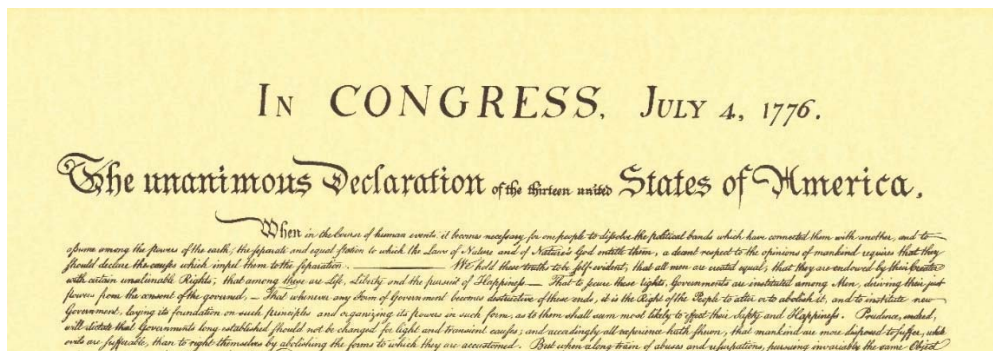 In CONGRESS, July 4, 1776.
The unanimous Declaration of the thirteen united States of America,
When in the Course of human events it becomes necessary for one people to dissolve the political bands which have connected them with another, and to
assume among the powers of the earth, the separate and equal station to which the Laws of Nature and of Nature's God entitle them, a decent respect to the opinions of mankind requires that they
should declare the causes which impel them to the separation. — We hold these truths to be self-evident, that all men are created equal, that they are endowed by their Creator
with certain unalienable Rights, that among these are Life, Liberty and the pursuit of Happiness — That to secure these rights, Governments are instituted among Men, deriving their just
powers from the consent of the governed, — That whenever any Form of Government becomes destructive of these ends, it is the Right of the People to alter or to abolish it, and to institute new
Government, laying its foundation on such principles and organizing its powers in such form, as to them shall seem most likely to effect their Safety and Happiness. Prudence, indeed,
will dictate that Governments long established should not be changed for light and transient causes; and accordingly all experience hath shewn, that mankind are more disposed to suffer, while
evils are sufferable, than to right themselves by abolishing the forms to which they are accustomed. But when a long train of abuses and usurpations, pursuing invariably the same Object